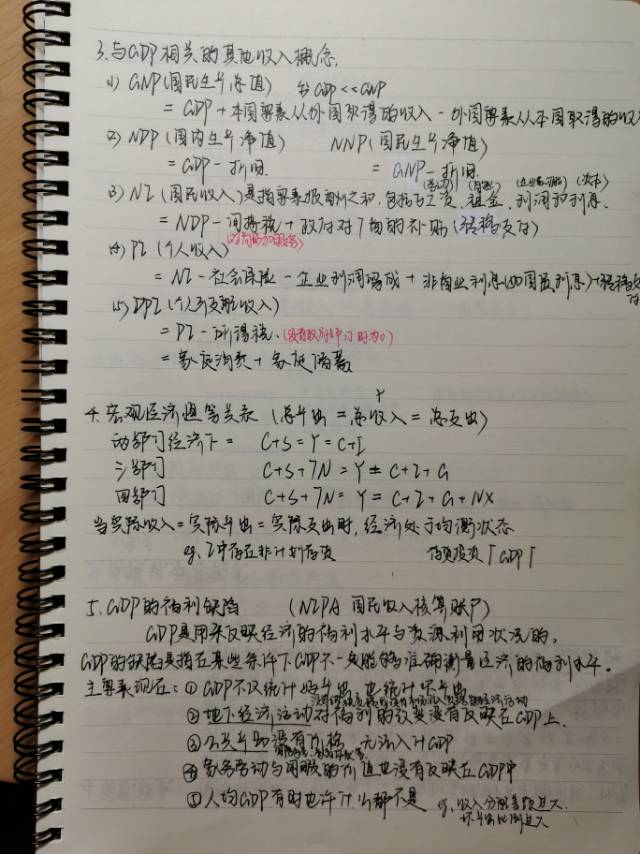 3. 与GDP相关的其他收入概念.
(1) GNP(国民生产总值) 若GDP<<GNP
= GDP + 本国要素从外国取得的收入 - 外国要素从本国取得的收入
(2) NDP (国内生产净值) NNP (国民生产净值)
= GDP - 折旧 = GNP - 折旧
(劳动) (企业家才能) (资本)
(3) NI (国民收入) 是指要素报酬之和, 包括工资, 租金, 利润和利息.
= NDP - 间接税 + 政府对厂商的补贴 (转移支付)
(4) PI (个人收入)
= NI - 社会保险 - 企业利润 + 非商业利息(如国债利息) + 转移支付
(5) DPI (个人可支配收入)
= PI - 所得税. (没有政府部门时为0)
= 家庭消费 + 家庭储蓄
Y
4. 宏观经济恒等关系 (总产出 = 总收入 = 总支出)
两部门经济下 = C+S = Y = C+I
三部门 C+S+TN = Y = C+I+G
四部门 C+S+TN = Y = C+I+G+NX
当实际收入 = 实际产出 = 实际支出时, 经济处于均衡状态
eg. I中存在非计划存货 存货投资↑GDP↑
5. GDP的福利缺陷 (NIPA 国民收入核算账户)
GDP是用来反映经济的福利水平与资源利用状况的.
GDP的缺陷是指在某些条件下GDP不一定能够准确测量经济的福利水平.
主要表现在: ① GDP不仅统计好产出 也统计坏产出
② 地下经济活动对福利的效果没有反映在GDP上.
③ 公共产品没有价格 无法计入GDP
④ 家务劳动与闲暇的价值也没有反映在GDP中
⑤ 人均GDP有时也许什么都不是 eg. 收入分配差距过大.
坏产出比例过大